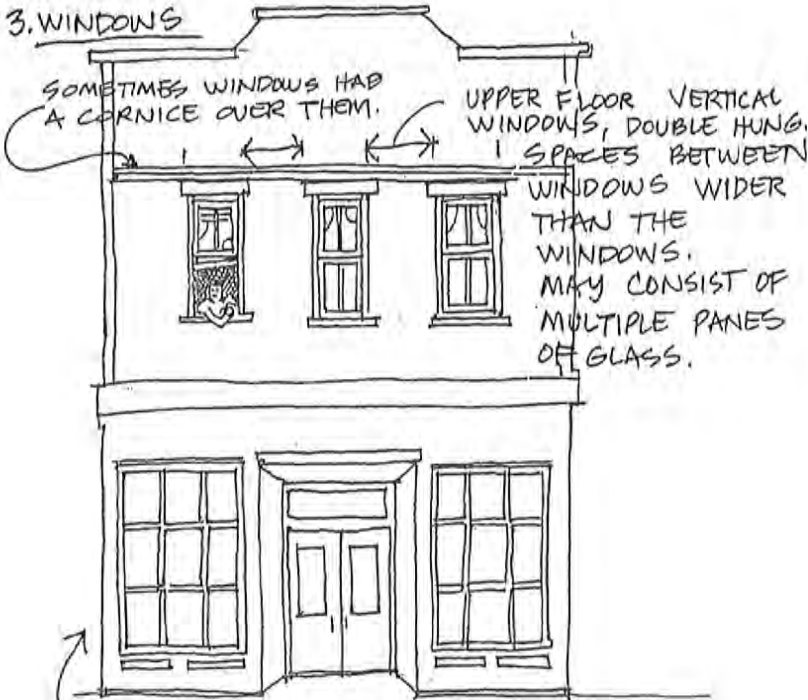 3. WINDOWS
SOMETIMES WINDOWS HAD
A CORNICE OVER THEM.
UPPER FLOOR VERTICAL
WINDOWS, DOUBLE HUNG.
SPACES BETWEEN
WINDOWS WIDER
THAN THE
WINDOWS.
MAY CONSIST OF
MULTIPLE PANES
OF GLASS.